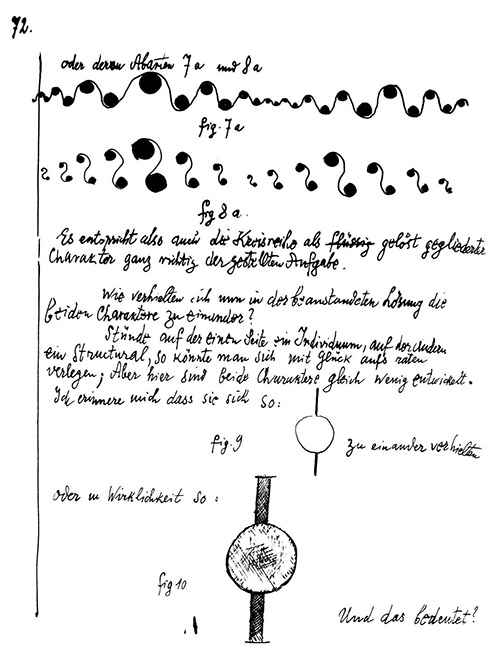 72.
oder deren Abarten 7a und 8a
fig. 7a
fig 8a.
Es entspricht also auch die Kreisreihe als flüssig gelöst gegliederter
Charakter ganz richtig der gestellten Aufgabe.
Wie verhielten sich nun in der beanstandeten Lösung die
beiden Charaktere zu einander?
Stünde auf der einen Seite ein Individuum, auf der andern
ein Structural, so könnte man sich mit Glück aufs raten
verlegen; Aber hier sind beide Charaktere gleich wenig entwickelt.
Ich erinnere mich dass sie sich so:
fig. 9 zu einander verhielten
oder in Wirklichkeit so:
fig 10
Und das bedeutet?